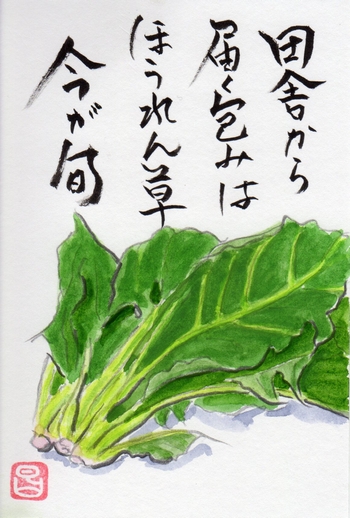 田舎から
届く包みは
ほうれん草
今が旬